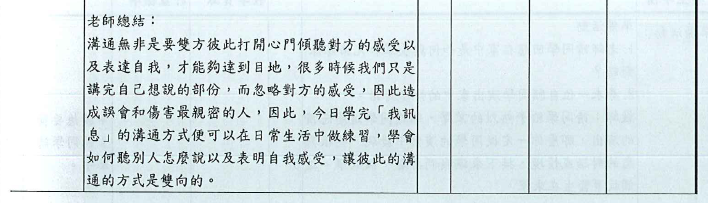 老師總結：
溝通無非是要雙方彼此打開心門傾聽對方的感受以
及表達自我，才能夠達到目地，很多時候我們只是
講完自己想說的部份，而忽略對方的感受，因此造
成誤會和傷害最親密的人，因此，今日學完「我訊
息」的溝通方式便可以在日常生活中做練習，學會
如何聽別人怎麼說以及表明自我感受，讓彼此的溝
通的方式是雙向的。